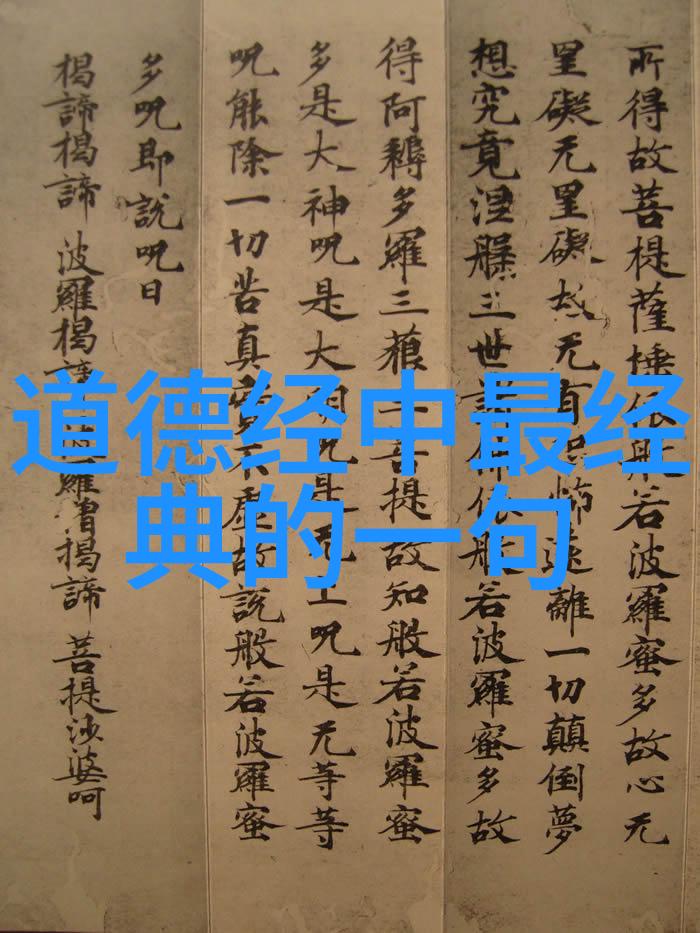 道德经中最经
典的一句
所得故菩提薩埵依般若波羅蜜多故心无
罣礙无罣礙故无有恐怖遠離一切顛倒夢
想究竟涅槃三世諸佛依般若波羅蜜多故
得阿耨多羅三藐三菩提故知般若波羅蜜
多是大神呪是大明呪是无上呪是无等等
呪能除一切苦真實不虛故說般若波羅蜜
多呪即說呪曰
揭諦揭諦 波羅揭諦 羅僧揭諦 菩提沙婆呵